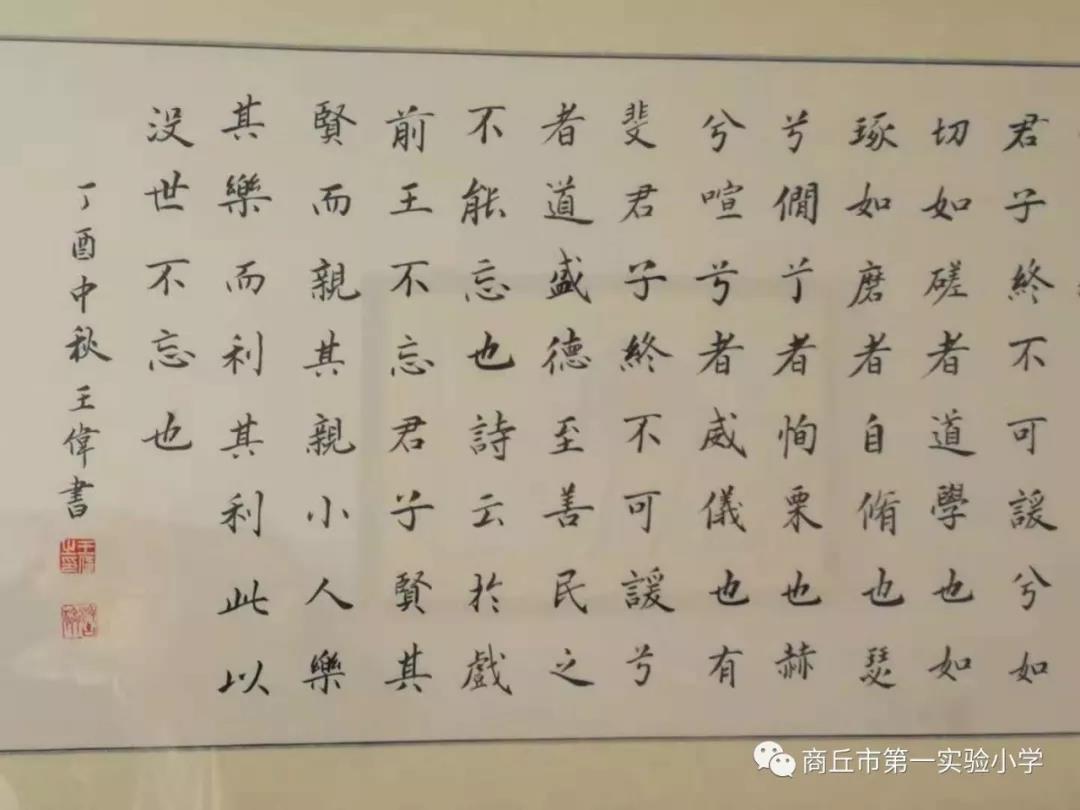 君子終不可諼兮如
切如磋者道學也如
琢如磨者自脩也瑟
兮僩兮者恂栗也赫
兮喧兮者威儀也有
斐君子終不可諼兮
者道盛德至善民之
不能忘也詩云於戲
前王不忘君子賢其
賢而親其親小人樂
其樂而利其利此以
没世不忘也
丁酉中秋王偉書
商丘市第一实验小学